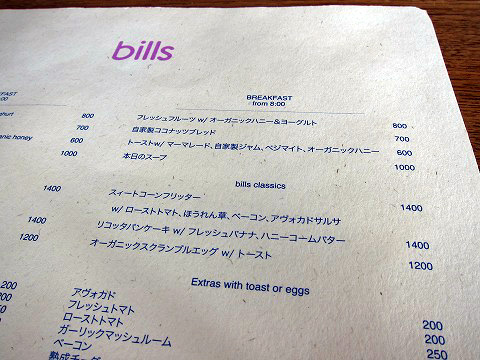 bills
BREAKFAST
from 8:00
フレッシュフルーツ w/ オーガニックハニー&ヨーグルト 800
自家製ココナッツブレッド 700
トーストw/ マーマレード、自家製ジャム、ベジマイト、オーガニックハニー 600
本日のスープ 1000
bills classics
スィートコーンフリッター
w/ ローストトマト、ほうれん草、ベーコン、アヴォカドサルサ 1400
リコッタパンケーキ w/ フレッシュバナナ、ハニーコームバター 1400
オーガニックスクランブルエッグ w/ トースト 1200
Extras with toast or eggs
アヴォカド 200
フレッシュトマト 200
ローストトマト 250
ガーリックマッシュルーム
ベーコン
8:00
800
700
honey 600
1000
1400
1400
1200
200
200
250